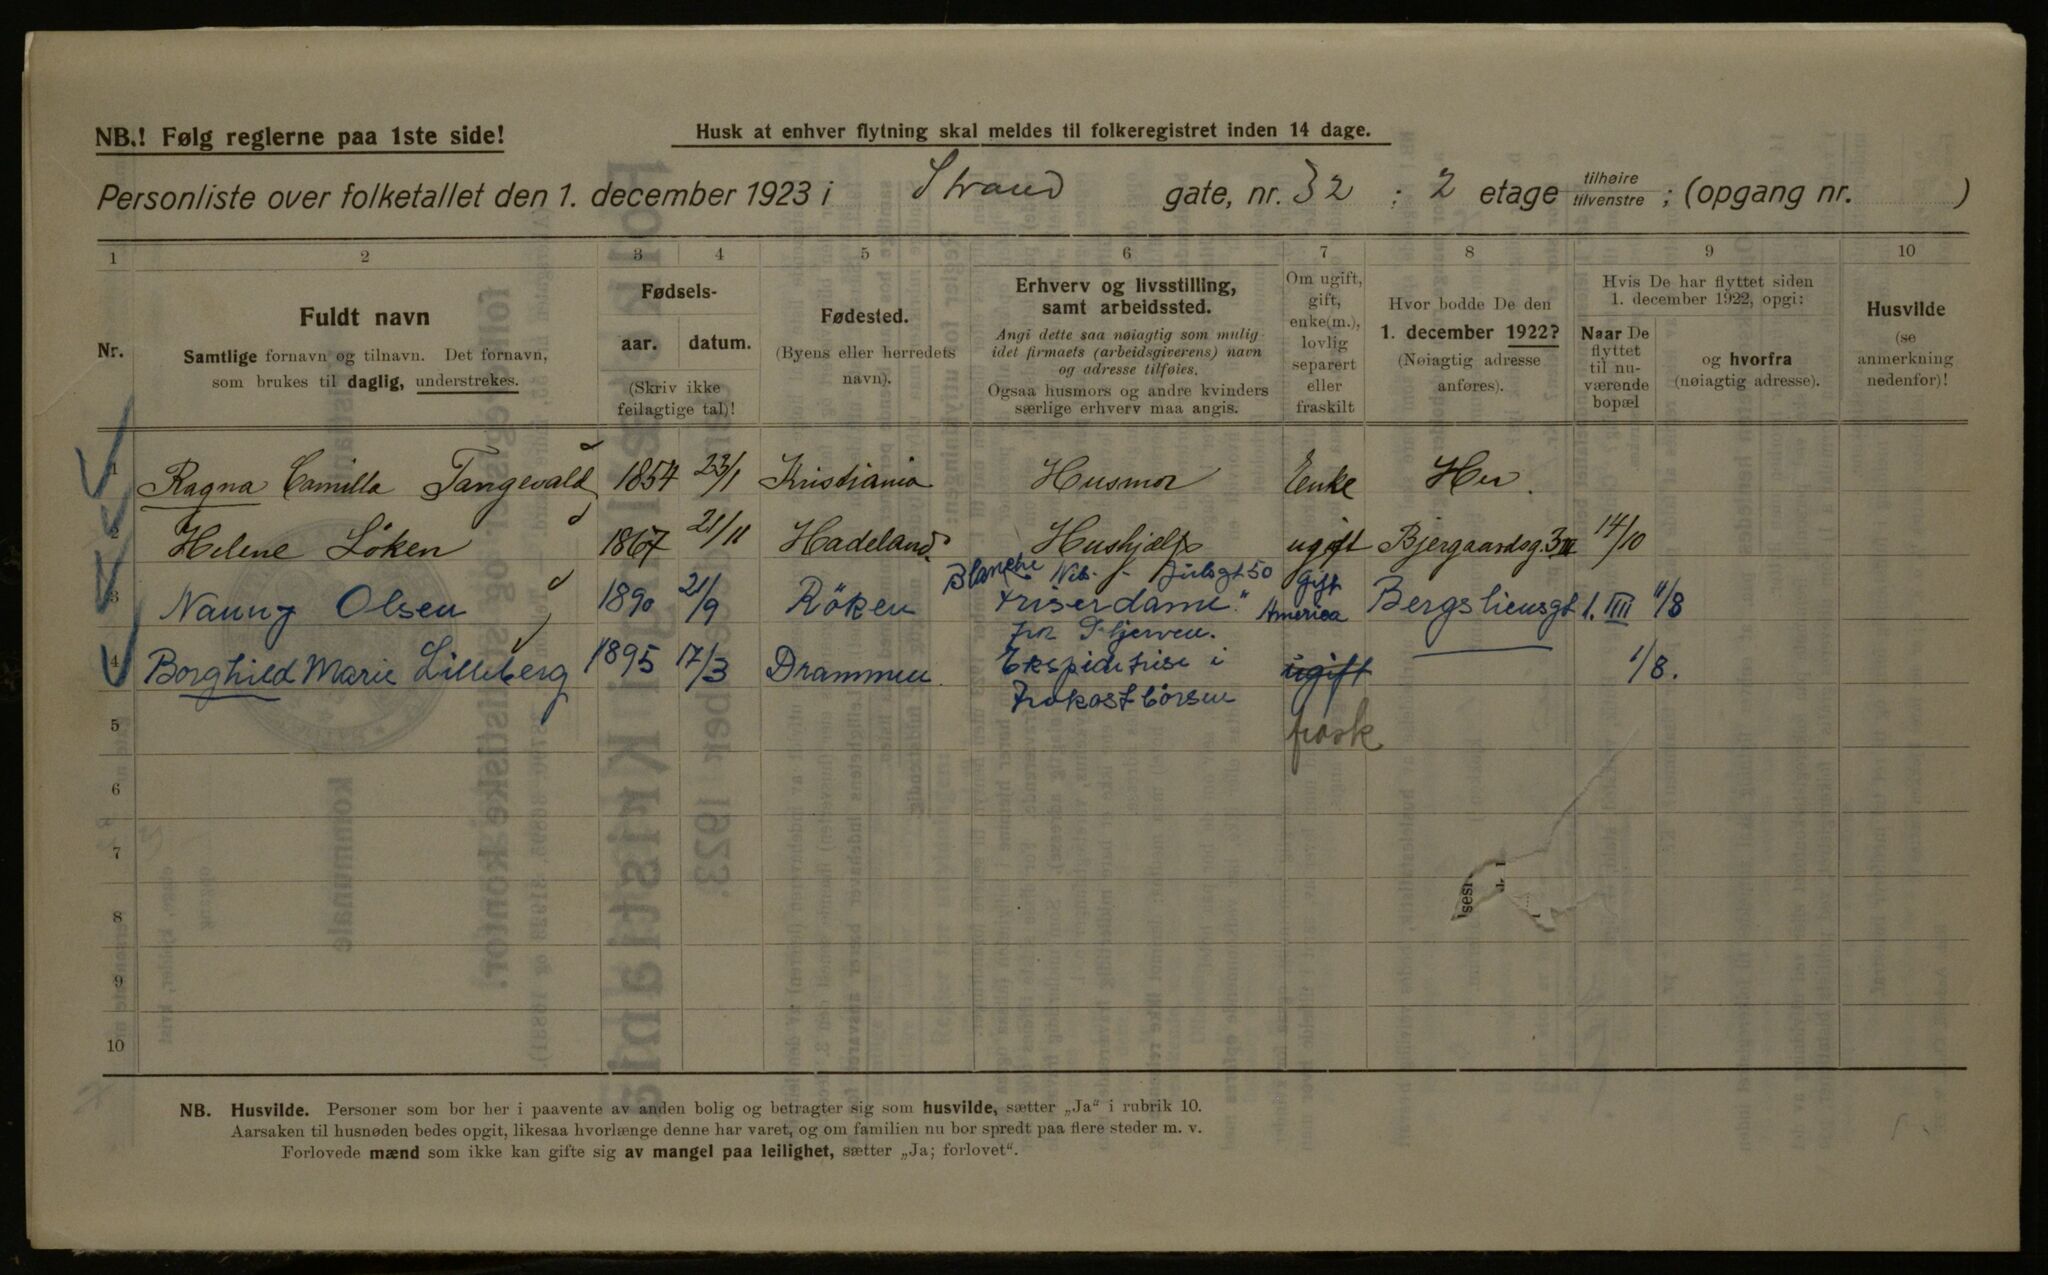 NB.! Følg reglerne paa 1ste side!
Husk at enhver flytning skal meldes til folkeregistret inden 14 dage.
Personliste over folketallet den 1. december 1923 i Strand gate, nr. 32 ; 2 etage tilhøire tilvenstre ; (opgang nr. )
1 2 3 4 5 6 7 8 9 10
Nr.
Fuldt navn
Samtlige fornavn og tilnavn. Det fornavn,
som brukes til daglig, understrekes.
Fødsels-
aar. datum.
(Skriv ikke
feilagtige tal)!
Fødested.
(Byens eller herredets
navn).
Erhverv og livsstilling,
samt arbeidssted.
Angi dette saa nøiagtig som mulig
idet firmaets (arbeidsgiverens) navn
og adresse tilføies.
Ogsaa husmors og andre kvinders
særlige erhverv maa angis.
Om ugift,
gift,
enke(m.),
lovlig
separert
eller
fraskilt
Hvor bodde De den
1. december 1922?
(Nøiagtig adresse
anføres).
Hvis De har flyttet siden
1. december 1922, opgi:
Naar De
flyttet
til nu-
værende
bopæl
og hvorfra
(nøiagtig adresse).
Husvilde
(se
anmerkning
nedenfor)!
1 Ragna Camilla Tangevald 1854 23/1 Kristiania Husmor Enke Her.
2 Helene Løken 1867 21/11 Hadeland Hushjælp ugift Bjergaardsg. 3 III 14/10
Blanche gift
3 Nanny Olsen 1890 21/9 Røken Friserdame America Bergsliensgt 1. IIII 11/8
4 Borghild Marie Lilleberg 1895 17/3 Drammen Ekspiditrise i ugift 1/8.
Frokostbørsen
5 frask
6
7
8
9
10
NB. Husvilde. Personer som bor her i paavente av anden bolig og betragter sig som husvilde, sætter „Ja“ i rubrik 10.
Aarsaken til husnøden bedes opgit, likesaa hvorlænge denne har varet, og om familien nu bor spredt paa flere steder m. v.
Forlovede mænd som ikke kan gifte sig av mangel paa leilighet, sætter „Ja; forlovet“.